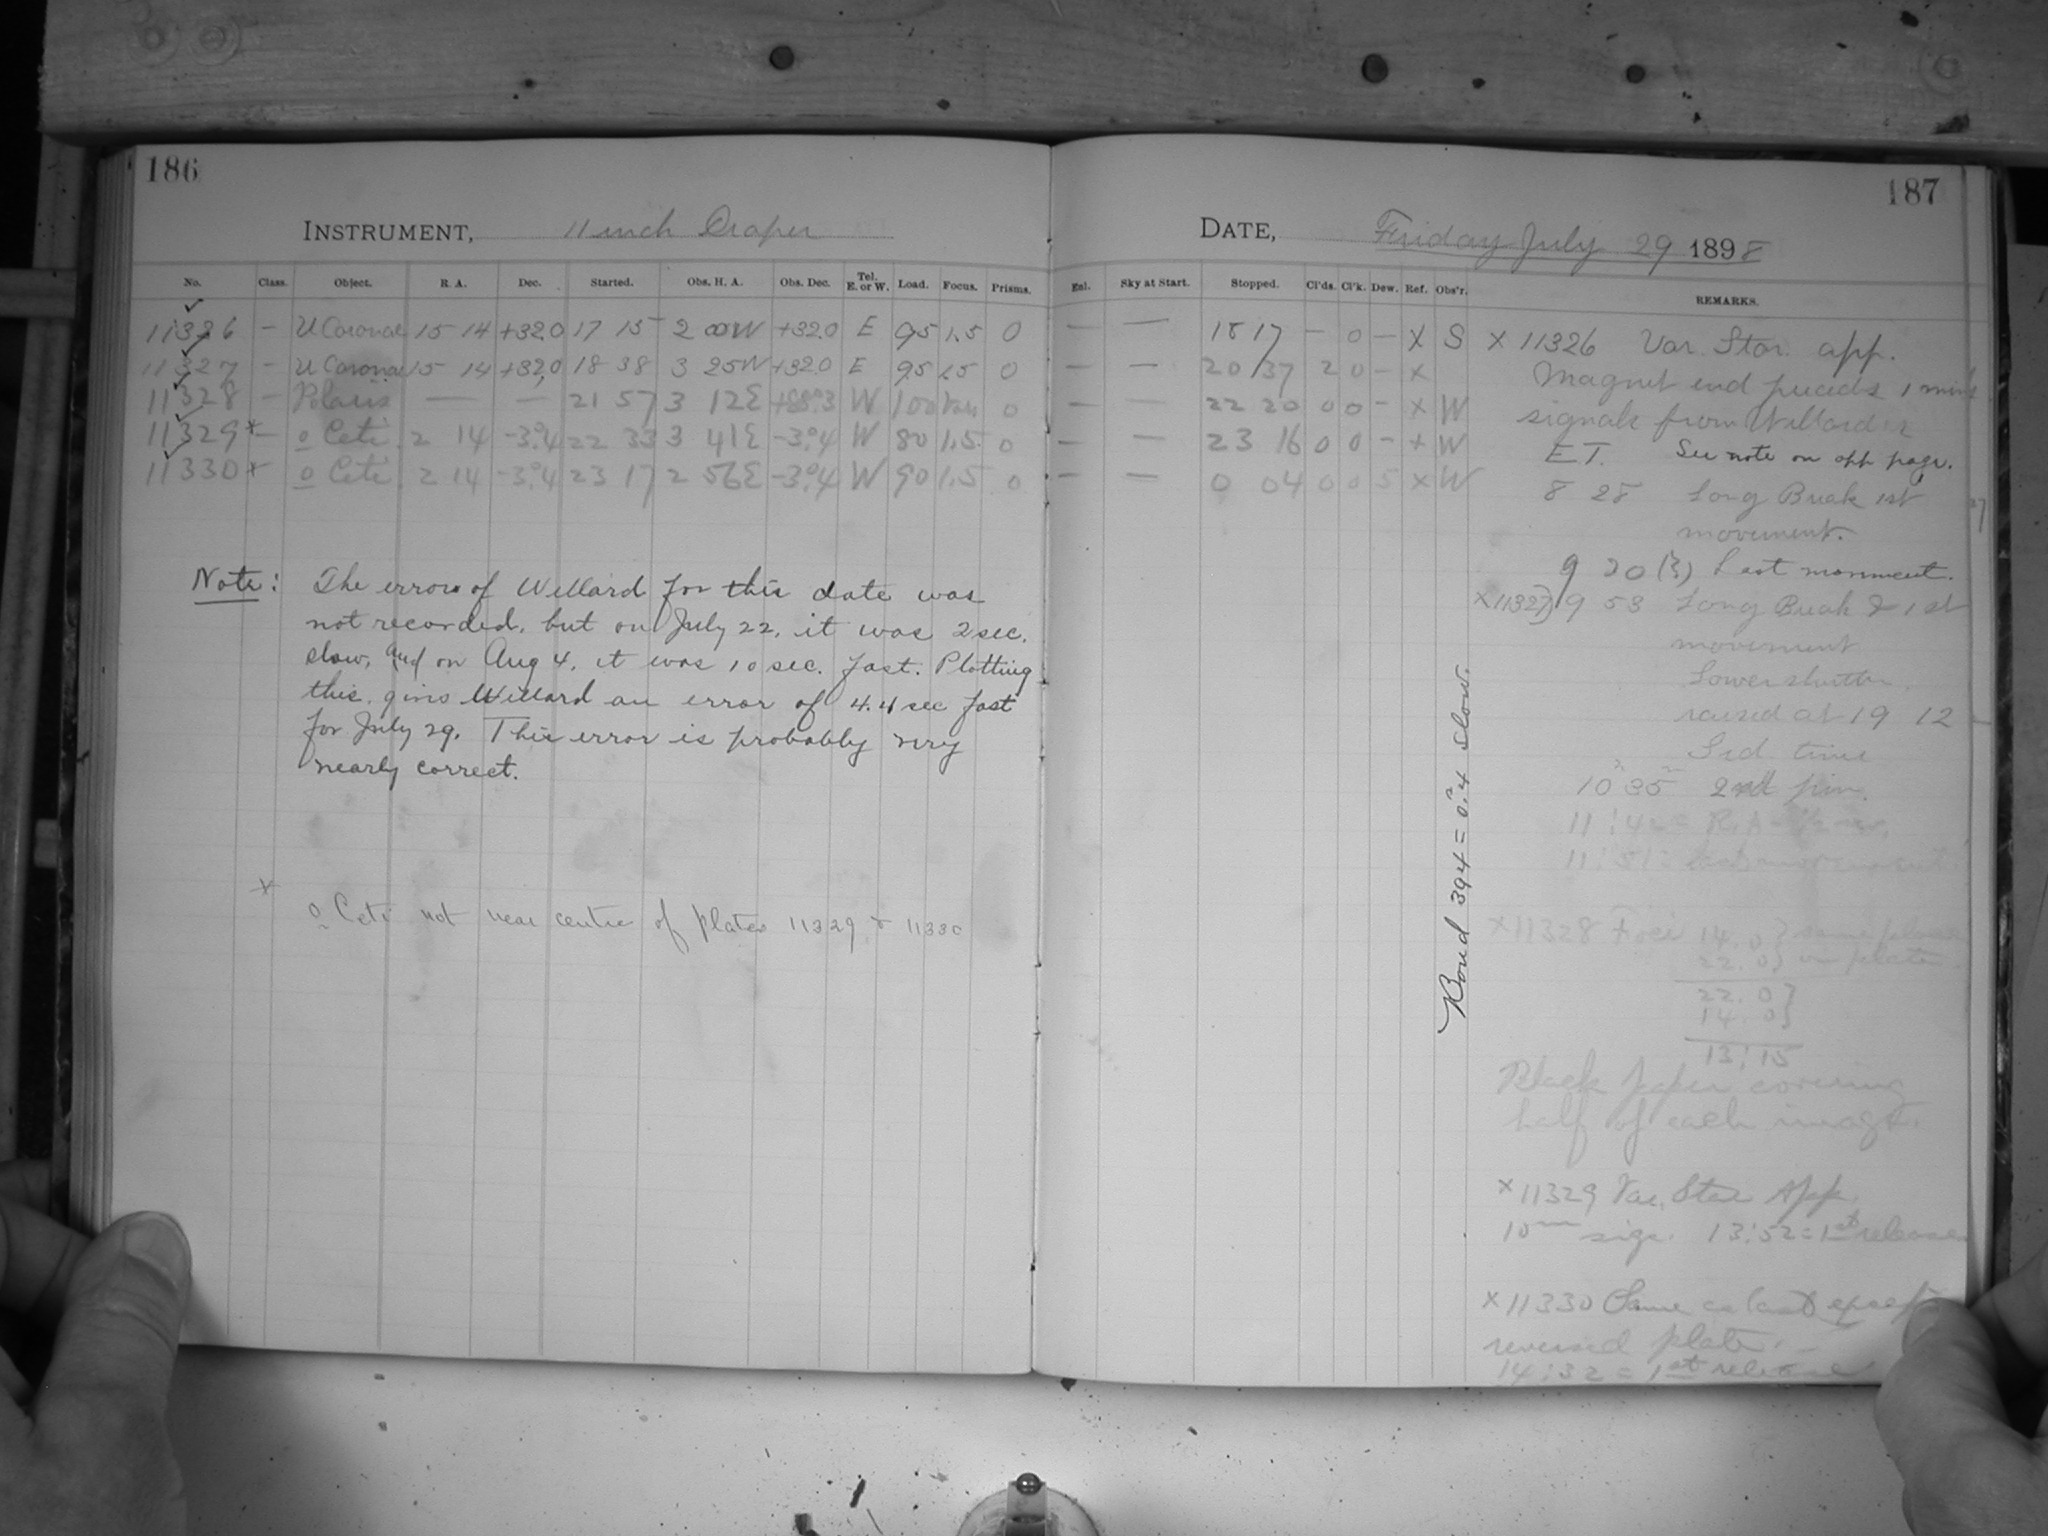 186
INSTRUMENT, 11 inch Draper
No. Class. Object. R. A. Dec. Started. Obs. H. A. Obs. Dec. Tel. E. or W. Load. Focus. Prisms.
11326 — U Coronae 15 14 +32.0 17 15 2 00W +32.0 E 95 1.5 0
11327 — U Coronae 15 14 +32.0 18 38 3 25W +32.0 E 95 1.5 0
11328 — Polaris — — 21 57 3 12E +88°.3 W 100 Var. 0
11329 * — o Ceti 2 14 -3°.4 22 33 3 41E -3°.4 W 80 1.5 0
11330 x o Ceti 2 14 -3°.4 23 17 2 56E -3°.4 W 90 1.5 0
Note: The error of Willard for this date was
not recorded, but on July 22, it was 2 sec.
slow, and on Aug 4, it was 10 sec. fast. Plotting
this, gives Willard an error of 4.4 sec fast
for July 29. This error is probably very
nearly correct.
x
o Ceti not near centre of plates 11329 & 11330
187
DATE, Friday July 29 1898
Enl. Sky at Start. Stopped. Cl'ds. Cl'k. Dew. Ref. Obs'r. REMARKS.
— — 18 17 — 0 — X S
— — 20 37 2 0 — x
— — 22 20 0 0 — x W
— — 23 16 0 0 — x W
— — 0 04 0 0 5 x W
x 11326 Var. Star. app.
Magnet end preceds 1 min
signals from Willard
E.T. See note on opp page.
8 28 Long Break 1st
movement.
9 20 (?) Last movement.
x11327) 9 53 Long Break & 1st
movement
Lower shutter
raised at 19 12
Sid time
10h 35m 2nd pin.
11:42 = R.A.
11:51 = last movement
x11328 Foci 14.0 } same place
22.0 } on plate
22.0 }
14.0 }
13:15
Black paper covering
half of each image.
x11329 Var. Star App.
10m sigs. 13:52 = 1st release
x11330 Same as last except
reversed plate.
14:32 = 1st release
Bond 394 = 0s.4 slow.